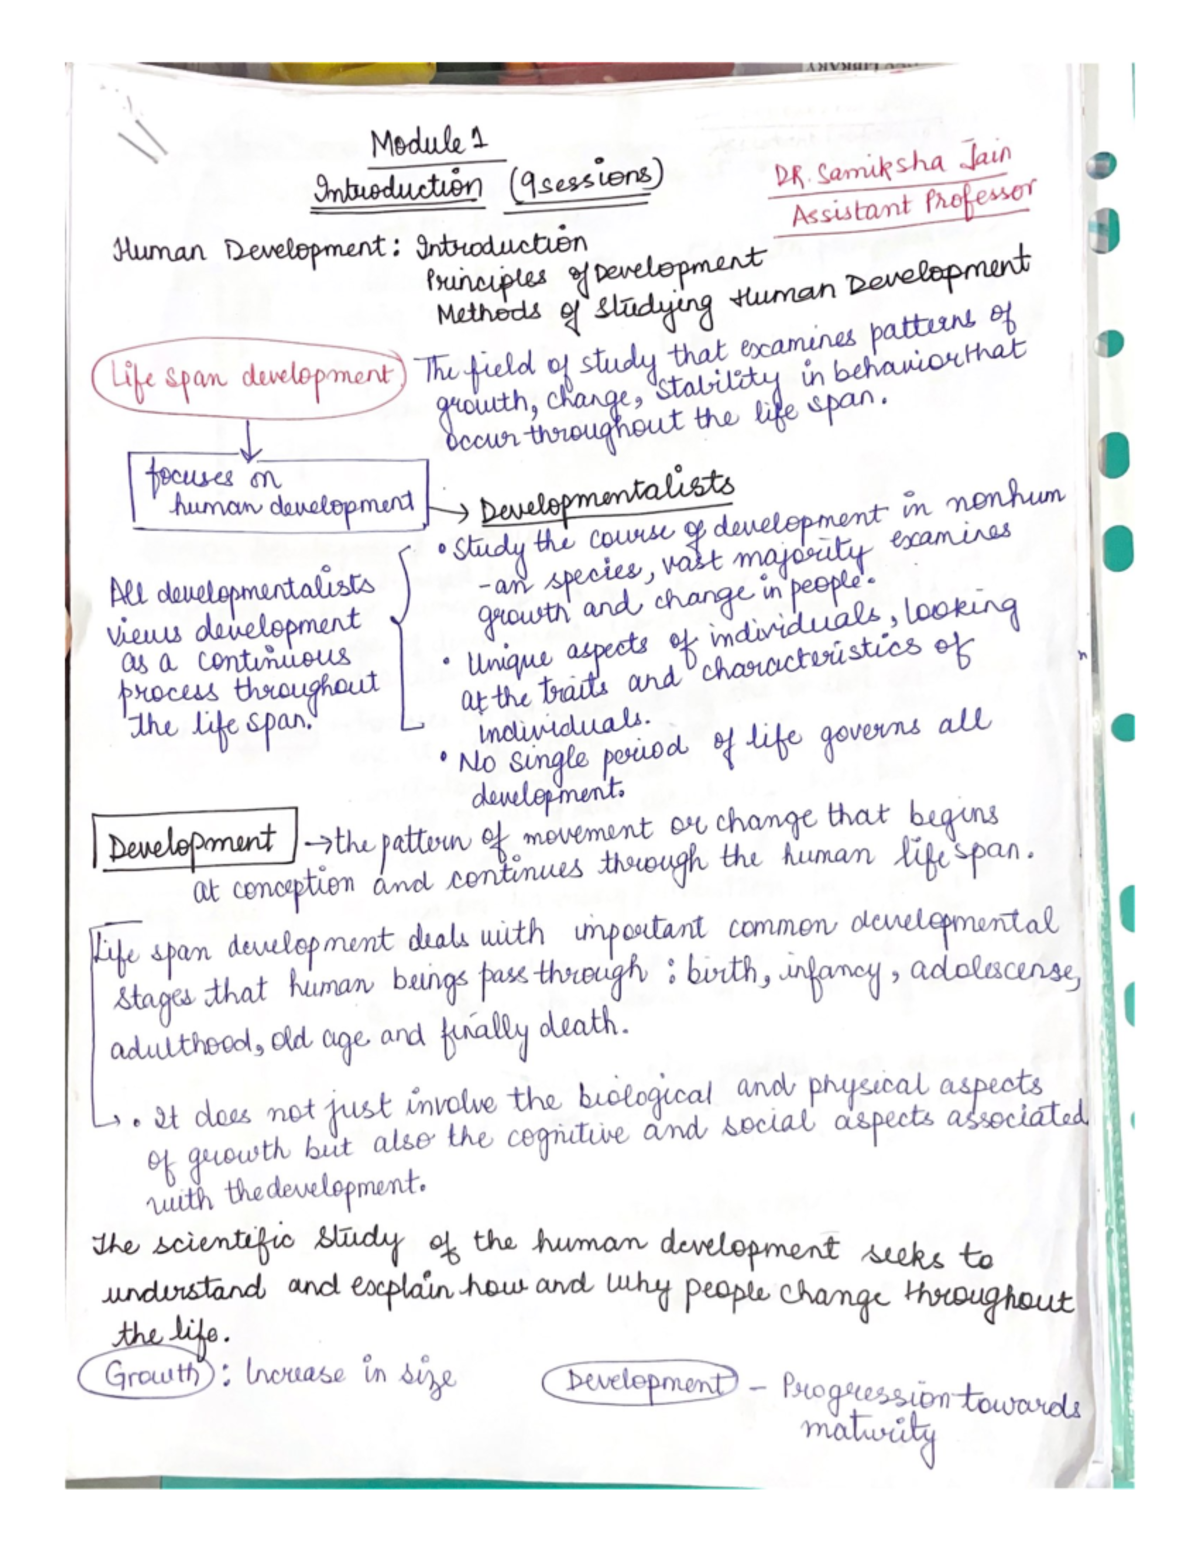 Module 1
Introduction (9 sessions)
DR. Samiksha Jain
Assistant Professor
Human Development: Introduction
Principles of Development
Methods of Studying Human Development
Life span development
The field of study that examines patterns of
growth, change, stability in behavior that
occur throughout the life span.
focuses on
human development
→ Developmentalists
• Study the course of development in nonhum
-an species, vast majority examines
growth and change in people.
• Unique aspects of individuals, looking
at the traits and characteristics of
individuals.
• No single period of life governs all
development.
All developmentalists
views development
as a continuous
process throughout
the life span.
Development → the pattern of movement or change that begins
at conception and continues through the human life span.
Life span development deals with important common developmental
stages that human beings pass through : birth, infancy, adolescense,
adulthood, old age and finally death.
• It does not just involve the biological and physical aspects
of growth but also the cognitive and social aspects associated
with the development.
The scientific study of the human development seeks to
understand and explain how and why people change throughout
the life.
Growth : Increase in size
Development - Progression towards
maturity